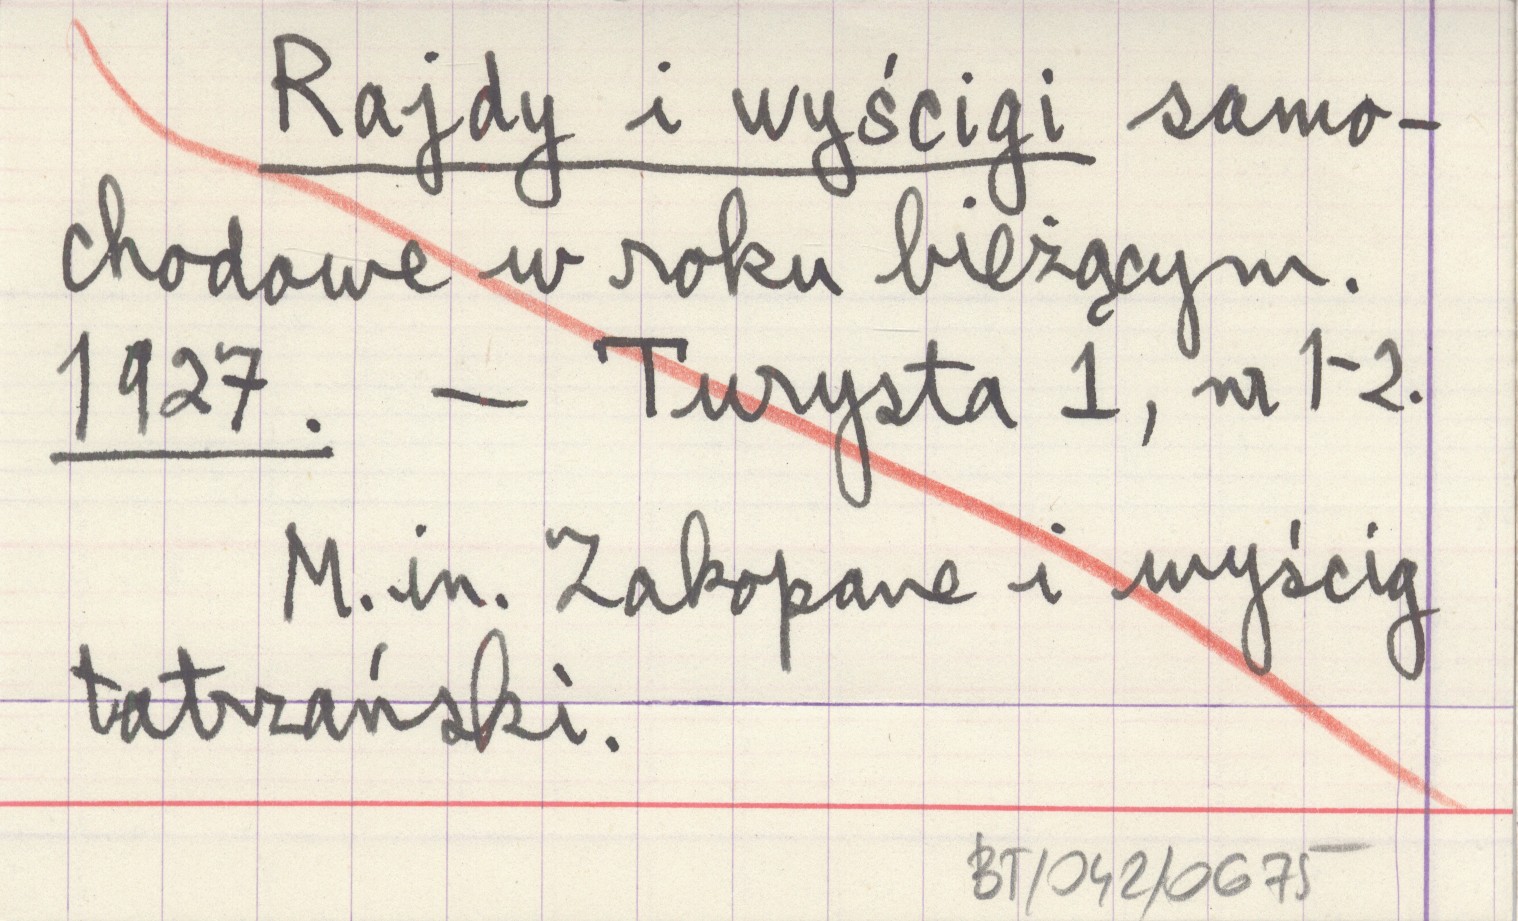 Rajdy i wyścigi samo-
chodowe w roku bieżącym.
1927. — Turysta 1, nr 1-2.
M. in. Zakopane i wyścig
tatrzański.
BT/042/0675